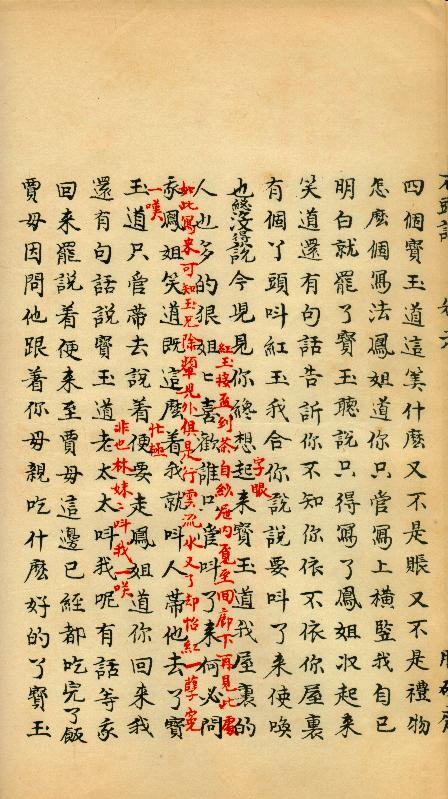 四個寶玉道這筭什麽又不是賬又不是禮物
怎麽個寫法鳳姐道你只管寫上橫豎我自己
明白就罷了寶玉聽說只得寫了鳳姐収起來
笑道還有句話告訴你不知你依不依你屋裏
有個丫頭叫紅玉我合你說說要叫了來使喚
字眼
也終沒得說今兒見你纔想起來寶玉道我屋裏的
紅玉接到茶自紗屜內覓至回廊下再見此處
人也多的狠姐ヒ喜歡誰只管叫了來何必問
如此寫來可知玉兄除顰兒外俱是行雲流水又了却怡紅一孽冤
一嘆
我鳳姐笑道既這麽着我就叫人帶他去了寶
忙極
玉道只管帶去說着便要走鳳姐道你回來我
非也林妹ヒ叫我一笑
還有句話說寶玉道老太太叫我呢有話等我
回來罷說着便來至賈母這邊已經都吃完了飯
賈母因問他跟着你母親吃什麽好的了寶玉